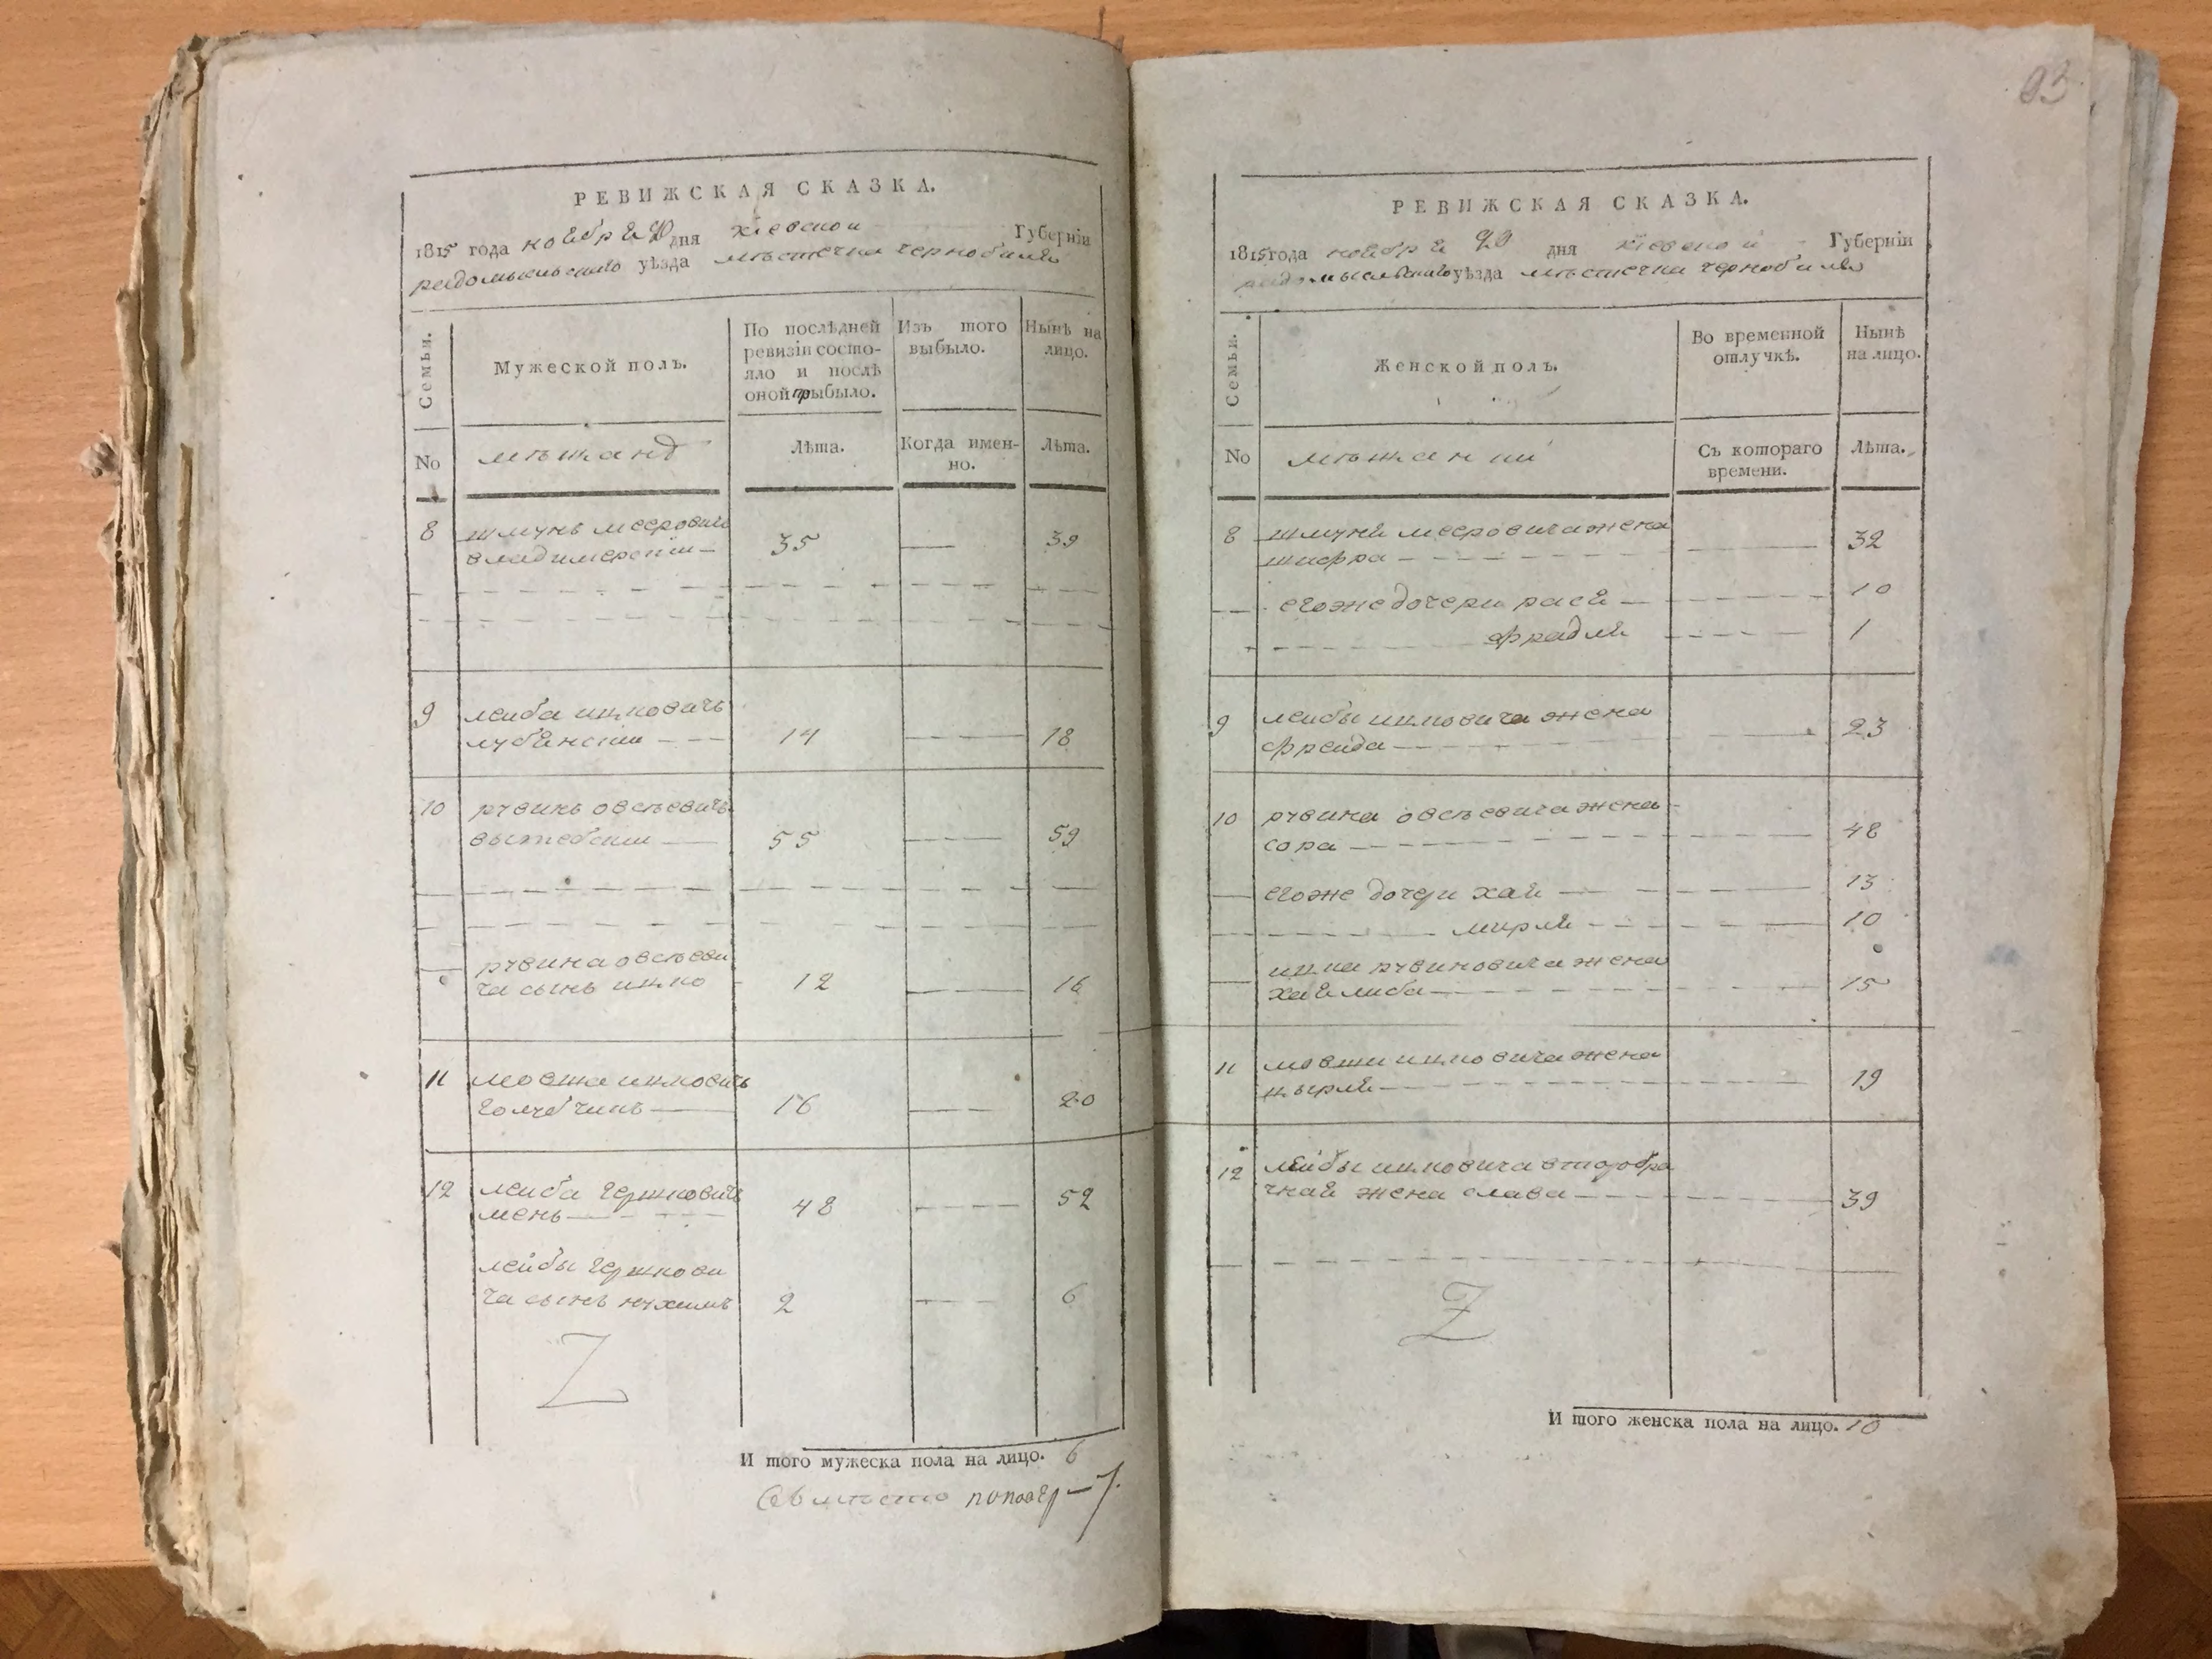 РЕВИЖСКАЯ СКАЗКА.
1815 года ноября 20 дня Кіевской Губерніи
радомыльского уѣзда мѣстечка чернобиля
Семьи.
Мужеской полъ.
По послѣдней ревизіи состояло и послѣ оной прыбыло.
Изъ того выбыло.
Нынѣ на лицо.
No
мѣщанъ
Лѣта.
Когда именно.
Лѣта.
8 шмунь мееровичь
владимерскіи — 35 — 39
9 леиба ицковичь
лубянскии — 14 — 18
10 рувинь овсѣевичь
вытебскии — 55 — 59
рувина овсѣеви
ча сынъ ицко 12 — 16
11 мовша ицковичь
голубчинь — 16 — 20
12 леиба гершковичь
мень — 48 — 52
лейбы гершкови
ча сынъ нухимъ 2 — 6
И того мужеска пола на лицо. 6
7
РЕВИЖСКАЯ СКАЗКА.
1815 года ноября 20 дня кіевской Губерніи
радомысльского уѣзда мѣстечка чернобиля
Семьи.
Женской полъ.
Во временной отлучкѣ.
Нынѣ на лицо.
No
мѣщанки
Съ котораго времени.
Лѣта.
8 шмуня мееровича жена
шифра — 32
егоже дочери рася — 10
фрадля 1
9 леибы ицковича жена
фреида — 23
10 рувина овсѣевича жена
сора — 48
егоже дочери хая — 13
мирля 10
ицка рувиновича жена
хая либа — 15
11 мовши ицковича жена
цырля — 19
12 лейбы ицковича второбра
чная жена слава — 39
И того женска пола на лицо. 10